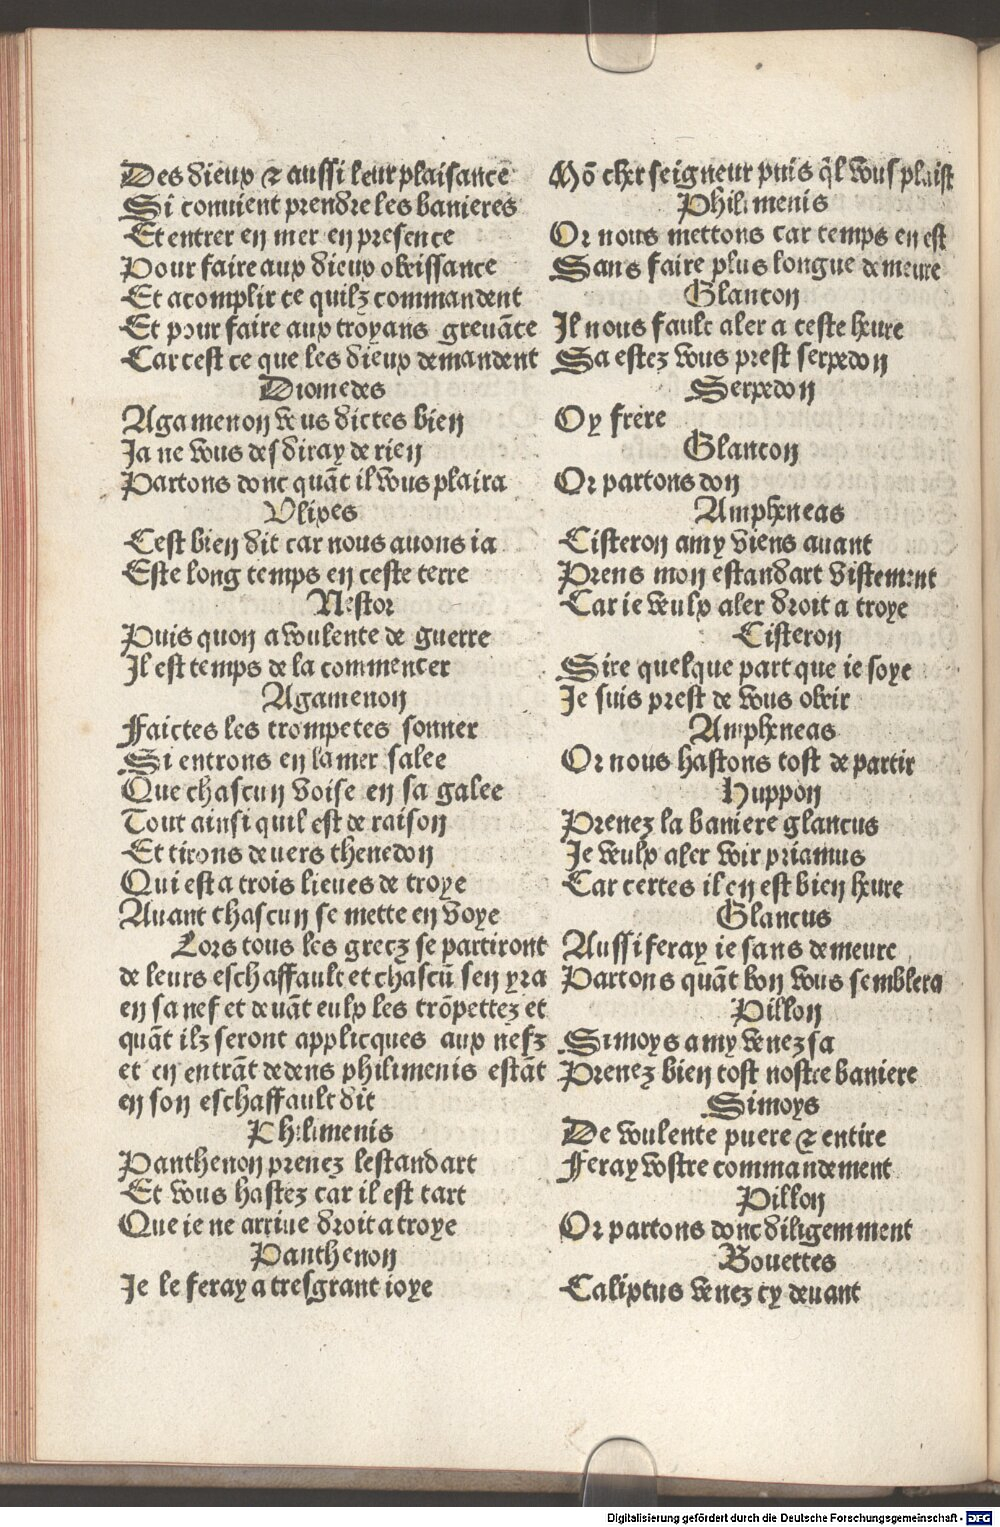 Des dieux ⁊ aussi leur plaisance
Si conuient prendre les banieres
Et entrer en mer en presence
Pour faire aux dieux obeissance
Et acomplir ce quilz commandent
Et pour faire aux troyans greuãce
Car cest ce que les dieux demandent
Diomedes
Agamenon vous dictes bien
Ja ne vous desdiray de rien
Partons donc quãt il vous plaira
Vlixes
Cest bien dit car nous auons ia
Este long temps en ceste terre
Nestor
Puis quon a voulente de guerre
Il est temps de la commencer
Agamenon
Faictes les trompetes sonner
Si entrons en la mer salee
Que chascun voise en sa galee
Tout ainsi quil est de raison
Et tirons deuers thenedon
Qui est a trois lieues de troye
Auant chascun se mette en voye
Lors tous les grecz se partiront
de leurs eschaffault et chascũ sen yra
en sa nef et deuãt eulx les trõpettez et
quãt ilz seront applicques aux nefz
et en entrãt dedens philimenis estãt
en son eschaffault dit
Philimenis
Panthenon prenez lestandart
Et vous hastez car il est tart
Que ie ne arriue droit a troye
Panthenon
Je le feray a tresgrant ioye
Mõ cher seigneur puis q̃l vous plaist
Philimenis
Or nous mettons car temps en est
Sans faire plus longue demeure
Glancon
Il nous fault aler a ceste heure
Sa estez vous prest serpedon
Serpedon
Oy frere
Glancon
Or partons don
Ampheneas
Cisteron amy viens auant
Prens mon estandart vistement
Car ie veulx aler droit a troye
Cisteron
Sire quelque part que ie soye
Je suis prest de vous obeir
Ampheneas
Or nous hastons tost de partir
Huppon
Prenez la baniere glancus
Je veulx aler voir priamus
Car certes il en est bien heure
Glancus
Aussi feray ie sans demeure
Partons quãt bon vous semblera
Pillon
Simoys amy venez sa
Prenez bien tost nostre baniere
Simoys
De voulente puere ⁊ entire
Feray vostre commandement
Pillon
Or partons donc diligemment
Bouettes
Caliptus venez cy deuant
Digitalisierung gefördert durch die Deutsche Forschungsgemeinschaft - DFG